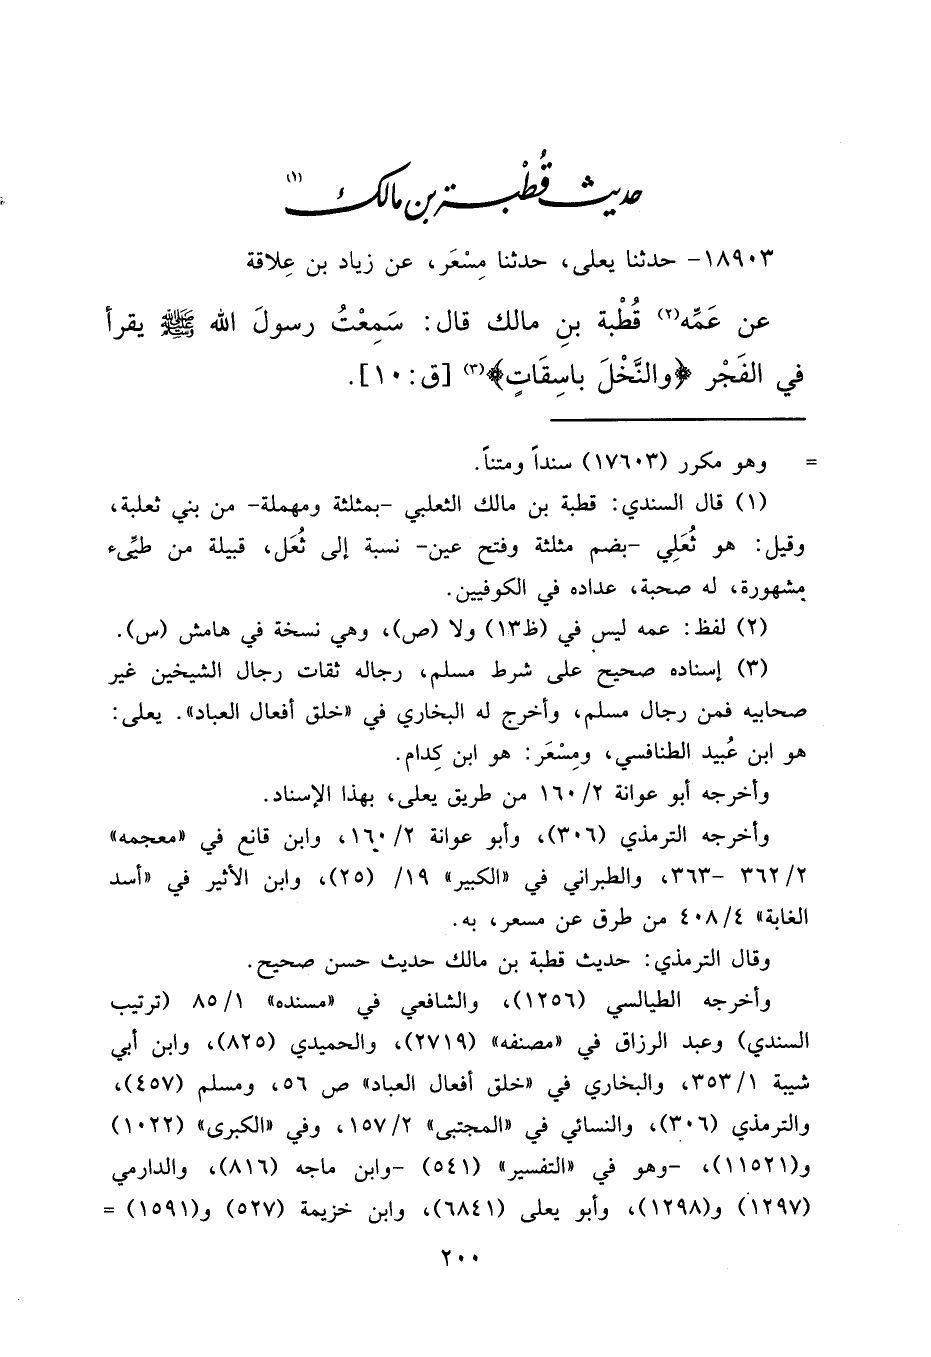 حديث قُطْبة بن مالك (١)
١٨٩٠٣- حدثنا يعلى، حدثنا مِسْعَر، عن زياد بن عِلاقة
عن عَمِّه(٢) قُطْبة بنِ مالك قال: سَمِعْتُ رسولَ الله ﷺ يقرأ
في الفَجْر ﴿والنَّخْلَ باسِقَاتٍ﴾(٣) [ق: ١٠].
= وهو مكرر (١٧٦٠٣) سنداً ومتناً.
(١) قال السندي: قطبة بن مالك الثعلبي -بمثلثة ومهملة- من بني ثعلبة،
وقيل: هو ثُعَلِي -بضم مثلثة وفتح عين- نسبة إلى ثُعَل، قبيلة من طيِّىء
مشهورة، له صحبة، عداده في الكوفيين.
(٢) لفظ: عمه ليس في (ظ١٣) ولا (ص)، وهي نسخة في هامش (س).
(٣) إسناده صحيح على شرط مسلم، رجاله ثقات رجال الشيخين غير
صحابيه فمن رجال مسلم، وأخرج له البخاري في «خلق أفعال العباد». يعلى:
هو ابن عُبيد الطنافسي، ومِسْعَر: هو ابن كِدام.
وأخرجه أبو عوانة ١٦٠/٢ من طريق يعلى، بهذا الإسناد.
وأخرجه الترمذي (٣٠٦)، وأبو عوانة ١٦٠/٢، وابن قانع في «معجمه»
٣٦٢/٢ -٣٦٣، والطبراني في «الكبير» ١٩/ (٢٥)، وابن الأثير في «أسد
الغابة» ٤٠٨/٤ من طرق عن مسعر، به.
وقال الترمذي: حديث قطبة بن مالك حديث حسن صحيح.
وأخرجه الطيالسي (١٢٥٦)، والشافعي في «مسنده» ٨٥/١ (ترتيب
السندي) وعبد الرزاق في «مصنفه» (٢٧١٩)، والحميدي (٨٢٥)، وابن أبي
شيبة ٣٥٣/١، والبخاري في «خلق أفعال العباد» ص ٥٦، ومسلم (٤٥٧)،
والترمذي (٣٠٦)، والنسائي في «المجتبى» ١٥٧/٢، وفي «الكبرى» (١٠٢٢)
و(١١٥٢١)، -وهو في «التفسير» (٥٤١) -وابن ماجه (٨١٦)، والدارمي
(١٢٩٧) و(١٢٩٨)، وأبو يعلى (٦٨٤١)، وابن خزيمة (٥٢٧) و(١٥٩١) =
٢٠٠